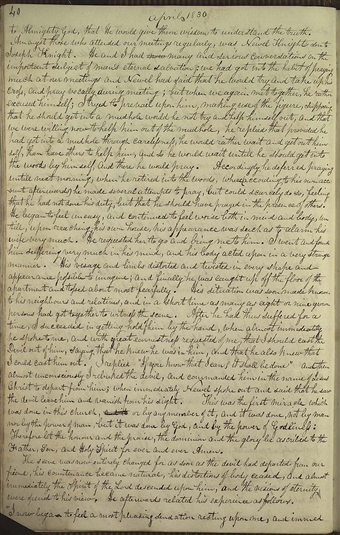 40
April 1830.
to Almighty God, that He would give them wisdom to understand the truth.
Amongst those who attended our meetings regularly, was Newel Knight son to
Joseph Knight. He and I had many and serious conversations on the
important subject of man's eternal salvation; we had got into the habit of praying
much at our meetings and Newel had said that he would try and take up his
cross, and pray vocally during meeting; but when we again met together, he rather
excused himself; I tryed to prevail upon him, making use of the figure, supposing
that he should get into a mudhole would he not try to help himself out, and that
we were willing now to help him out of the mudhole, he replied that provided he
had got into a mudhole through carelessness, he would rather wait and get out him-
self, than have others to help him, and so he would wait until he should get into
the woods by himself, and there he would pray. Accordingly he deferred praying
until next morning, when he retired into the woods; where (according to his own acc-
ount afterwards) he made several attempts to pray, but could scarcely do so, feeling
that he had not done his duty, but that he should have prayed in the presence of others.
He began to feel uneasy, and continued to feel worse both in mind and body, un-
till, upon reaching his own house, his appearance was such as to alarm his
wife very much. He requested her to go and bring me to him. I went and found
him suffering very much in his mind, and his body acted upon in a very strange
manner. His visage and limbs distorted and twisted in every shape and
appearance possible to imagine; and finally he was caught up off the floor of the
apartment and tossed about most fearfully. His situation was soon made known
to his neighbours and relatives, and in a short time as many as eight or nine grown
persons had got together to witness the scene. After he had thus suffered for a
time, I succeeded in getting hold of him by the hand, when almost immediately
he spoke to me, and with great earnestness requested of me, that I should cast the
Devil out of him, saying that he knew he was in him, and that he also knew that
I could cast him out. I replied "if you know that I can, it shall be done" and then
almost unconsciously I rebuked the devil, and commanded him in the name of Jesus
Christ to depart from him; when immediately Newel spoke out and said that he saw
the devil leave him and vanish from his sight. This was the first miracle which
was done in this church, or by any member of it, and it was done, not by man
nor by the power of man, but it was done by God, and by the power of Godliness:
Therefore let the honour and the praise, the dominion and the glory be ascribed to the
Father, Son, and Holy Spirit for ever and ever Amen.
The scene was now entirely changed for as soon as the devil had departed from our
friend, his countenance became natural, his distortions of body ceased, and almost
immediately the Spirit of the Lord descended upon him, and the visions of eternity
were opened to his view. He afterwards related his experience as follows.
I now began to feel a most pleasing sensation resting upon me, and immed